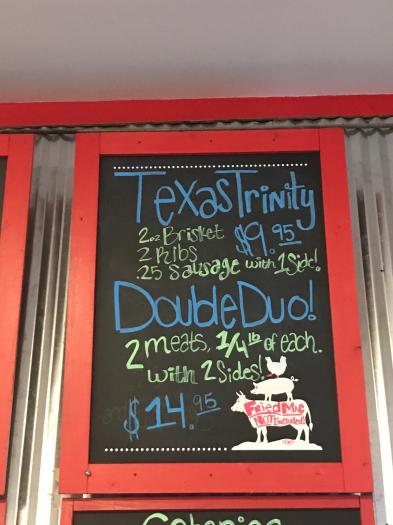 Texas Trinity
2oz Brisket $9.95
2 Ribs
.25 Sausage with 1 Side!
Double Duo!
2 meats, 1/4 lb of each.
with 2 Sides!
$14.95
Fried Mac
NOT Included!
Catering